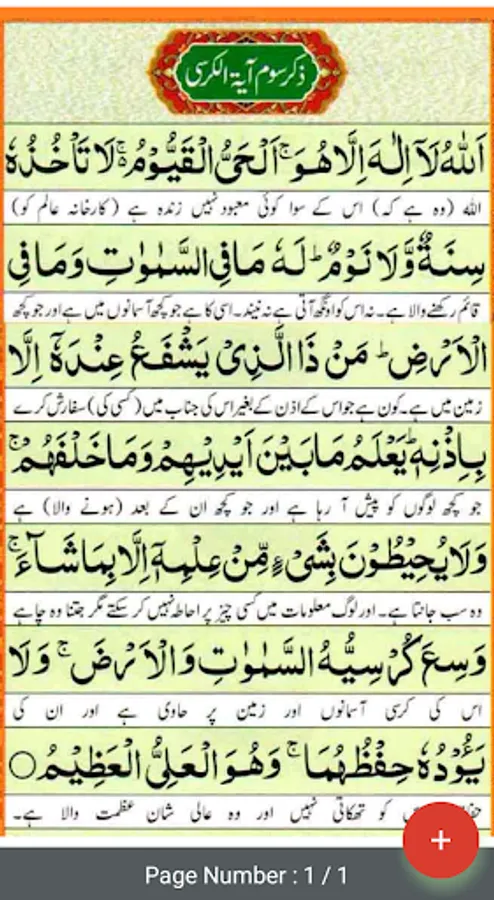 ذکر سوم آیۃ الکرسی
اَللّٰهُ لَاۤ اِلٰهَ اِلَّا هُوَ ۚ اَلْحَیُّ الْقَیُّوْمُ ۚ لَا تَاْخُذُهٗ
اللہ (وہ ہے کہ) اس کے سوا کوئی معبود نہیں زندہ ہے (کارخانہ عالم کو)
سِنَةٌ وَّلَا نَوْمٌ ؕ لَهٗ مَا فِی السَّمٰوٰتِ وَمَا فِی
قائم رکھنے والا ہے۔ نہ اس کو اونگھ آتی ہے نہ نیند۔ اسی کا ہے جو کچھ آسمانوں میں ہے اور جو کچھ
الْاَرْضِ ؕ مَنْ ذَا الَّذِیْ یَشْفَعُ عِنْدَهٗۤ اِلَّا
زمین میں ہے۔ کون ہے جو اس کے اذن کے بغیر اس کی جناب میں (کسی کی) سفارش کرے
بِاِذْنِهٖ ؕ یَعْلَمُ مَا بَیْنَ اَیْدِیْهِمْ وَمَا خَلْفَهُمْ ۚ
جو کچھ لوگوں کو پیش آ رہا ہے اور جو کچھ ان کے بعد (ہونے والا) ہے
وَلَا یُحِیْطُوْنَ بِشَیْءٍ مِّنْ عِلْمِهٖۤ اِلَّا بِمَا شَآءَ ۚ
وہ سب جانتا ہے۔ اور لوگ معلومات میں کسی چیز پر احاطہ نہیں کر سکتے مگر جتنا وہ چاہے
وَسِعَ كُرْسِیُّهُ السَّمٰوٰتِ وَالْاَرْضَ ۚ وَلَا
اس کی کرسی آسمانوں اور زمین پر حاوی ہے اور ان کی
یَـُٔوْدُهٗ حِفْظُهُمَا ۚ وَهُوَ الْعَلِیُّ الْعَظِیْمُ ○
کو تھکاتی نہیں اور وہ عالی شان عظمت والا ہے۔
+
Page Number : 1 / 1